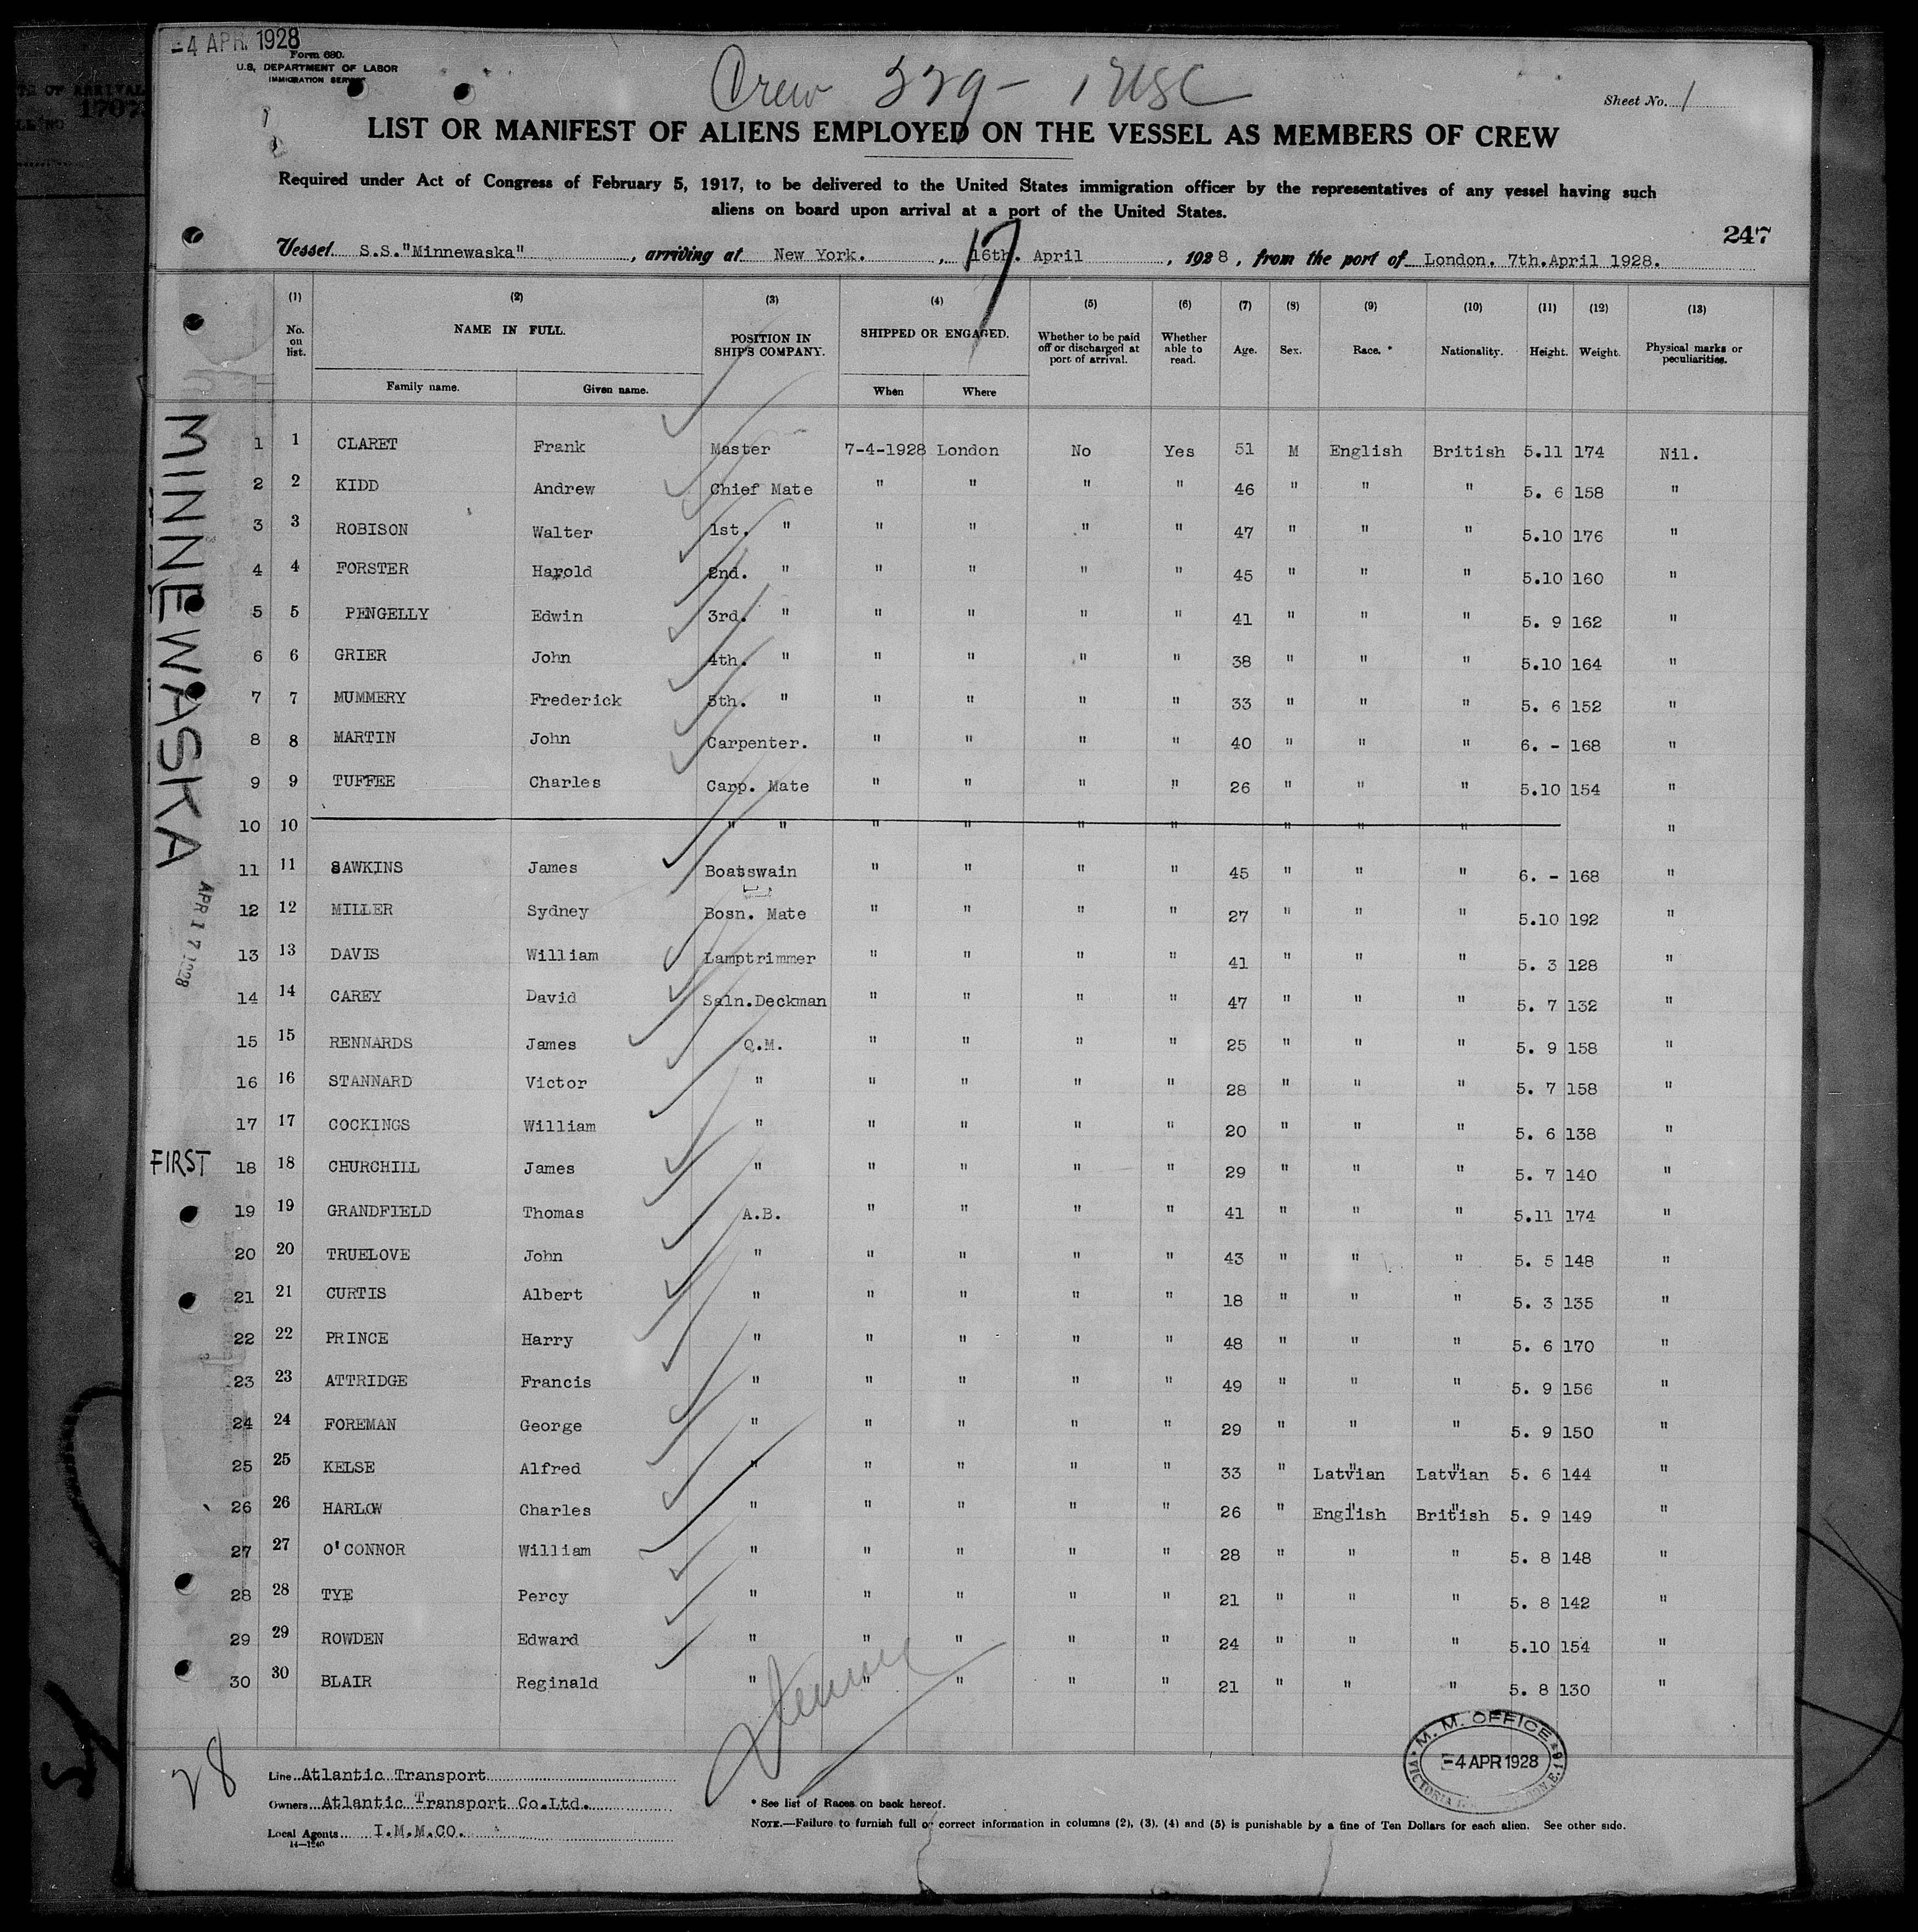 -4 APR. 1928
Form 680.
U.S. DEPARTMENT OF LABOR
IMMIGRATION SERVICE
Crew 229 - 1 USC
Sheet No. 1
LIST OR MANIFEST OF ALIENS EMPLOYED ON THE VESSEL AS MEMBERS OF CREW
Required under Act of Congress of February 5, 1917, to be delivered to the United States immigration officer by the representatives of any vessel having such
aliens on board upon arrival at a port of the United States.
247
17
Vessel S.S."Minnewaska", arriving at New York., 16th. April, 1928, from the port of London. 7th.April 1928.
(1) (2) (3) (4) (5) (6) (7) (8) (9) (10) (11) (12) (13)
No. on list. NAME IN FULL. POSITION IN SHIP'S COMPANY. SHIPPED OR ENGAGED. Whether to be paid off or discharged at port of arrival. Whether able to read. Age. Sex. Race. * Nationality. Height. Weight. Physical marks or peculiarities.
Family name. Given name. When Where
1 1 CLARET Frank Master 7-4-1928 London No Yes 51 M English British 5.11 174 Nil.
2 2 KIDD Andrew Chief Mate " " " " 46 " " " 5. 6 158 "
3 3 ROBISON Walter 1st. " " " " " 47 " " " 5.10 176 "
4 4 FORSTER Harold 2nd. " " " " " 45 " " " 5.10 160 "
5 5 PENGELLY Edwin 3rd. " " " " " 41 " " " 5. 9 162 "
6 6 GRIER John 4th. " " " " " 38 " " " 5.10 164 "
7 7 MUMMERY Frederick 5th. " " " " " 33 " " " 5. 6 152 "
8 8 MARTIN John Carpenter. " " " " 40 " " " 6. - 168 "
9 9 TUFFEE Charles Carp. Mate " " " " 26 " " " 5.10 154 "
10 10 " " " " " " " " " "
11 11 SAWKINS James Boatswain " " " " 45 " " " 6. - 168 "
12 12 MILLER Sydney Bosn. Mate " " " " 27 " " " 5.10 192 "
13 13 DAVIS William Lamptrimmer " " " " 41 " " " 5. 3 128 "
14 14 CAREY David Saln.Deckman " " " " 47 " " " 5. 7 132 "
15 15 RENNARDS James Q.M. " " " " 25 " " " 5. 9 158 "
16 16 STANNARD Victor " " " " " 28 " " " 5. 7 158 "
17 17 COCKINGS William " " " " " 20 " " " 5. 6 138 "
18 18 CHURCHILL James " " " " " 29 " " " 5. 7 140 "
19 19 GRANDFIELD Thomas A.B. " " " " 41 " " " 5.11 174 "
20 20 TRUELOVE John " " " " " 43 " " " 5. 5 148 "
21 21 CURTIS Albert " " " " " 18 " " " 5. 3 135 "
22 22 PRINCE Harry " " " " " 48 " " " 5. 6 170 "
23 23 ATTRIDGE Francis " " " " " 49 " " " 5. 9 156 "
24 24 FOREMAN George " " " " " 29 " " " 5. 9 150 "
25 25 KELSE Alfred " " " " " 33 " Latvian Latvian 5. 6 144 "
26 26 HARLOW Charles " " " " " 26 " English British 5. 9 149 "
27 27 O'CONNOR William " " " " " 28 " " " 5. 8 148 "
28 28 TYE Percy " " " " " 21 " " " 5. 8 142 "
29 29 ROWDEN Edward " " " " " 24 " " " 5.10 154 "
30 30 BLAIR Reginald " " " " " 21 " " " 5. 8 130 "
MINNEWASKA
APR 17 1928
FIRST
28
Line Atlantic Transport
Owners Atlantic Transport Co.Ltd.
Local Agents I.M.M.CO.
14-1240
* See list of Races on back hereof.
NOTE.—Failure to furnish full or correct information in columns (2), (3), (4) and (5) is punishable by a fine of Ten Dollars for each alien. See other side.
M. M. OFFICE
-4 APR 1928
VICTORIA
1707